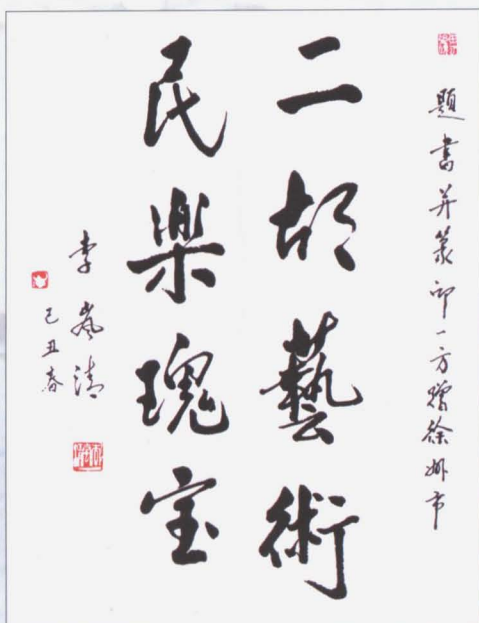 題書并篆印一方赠徐州市
二胡藝術
民樂瑰宝
李岚清
己丑春